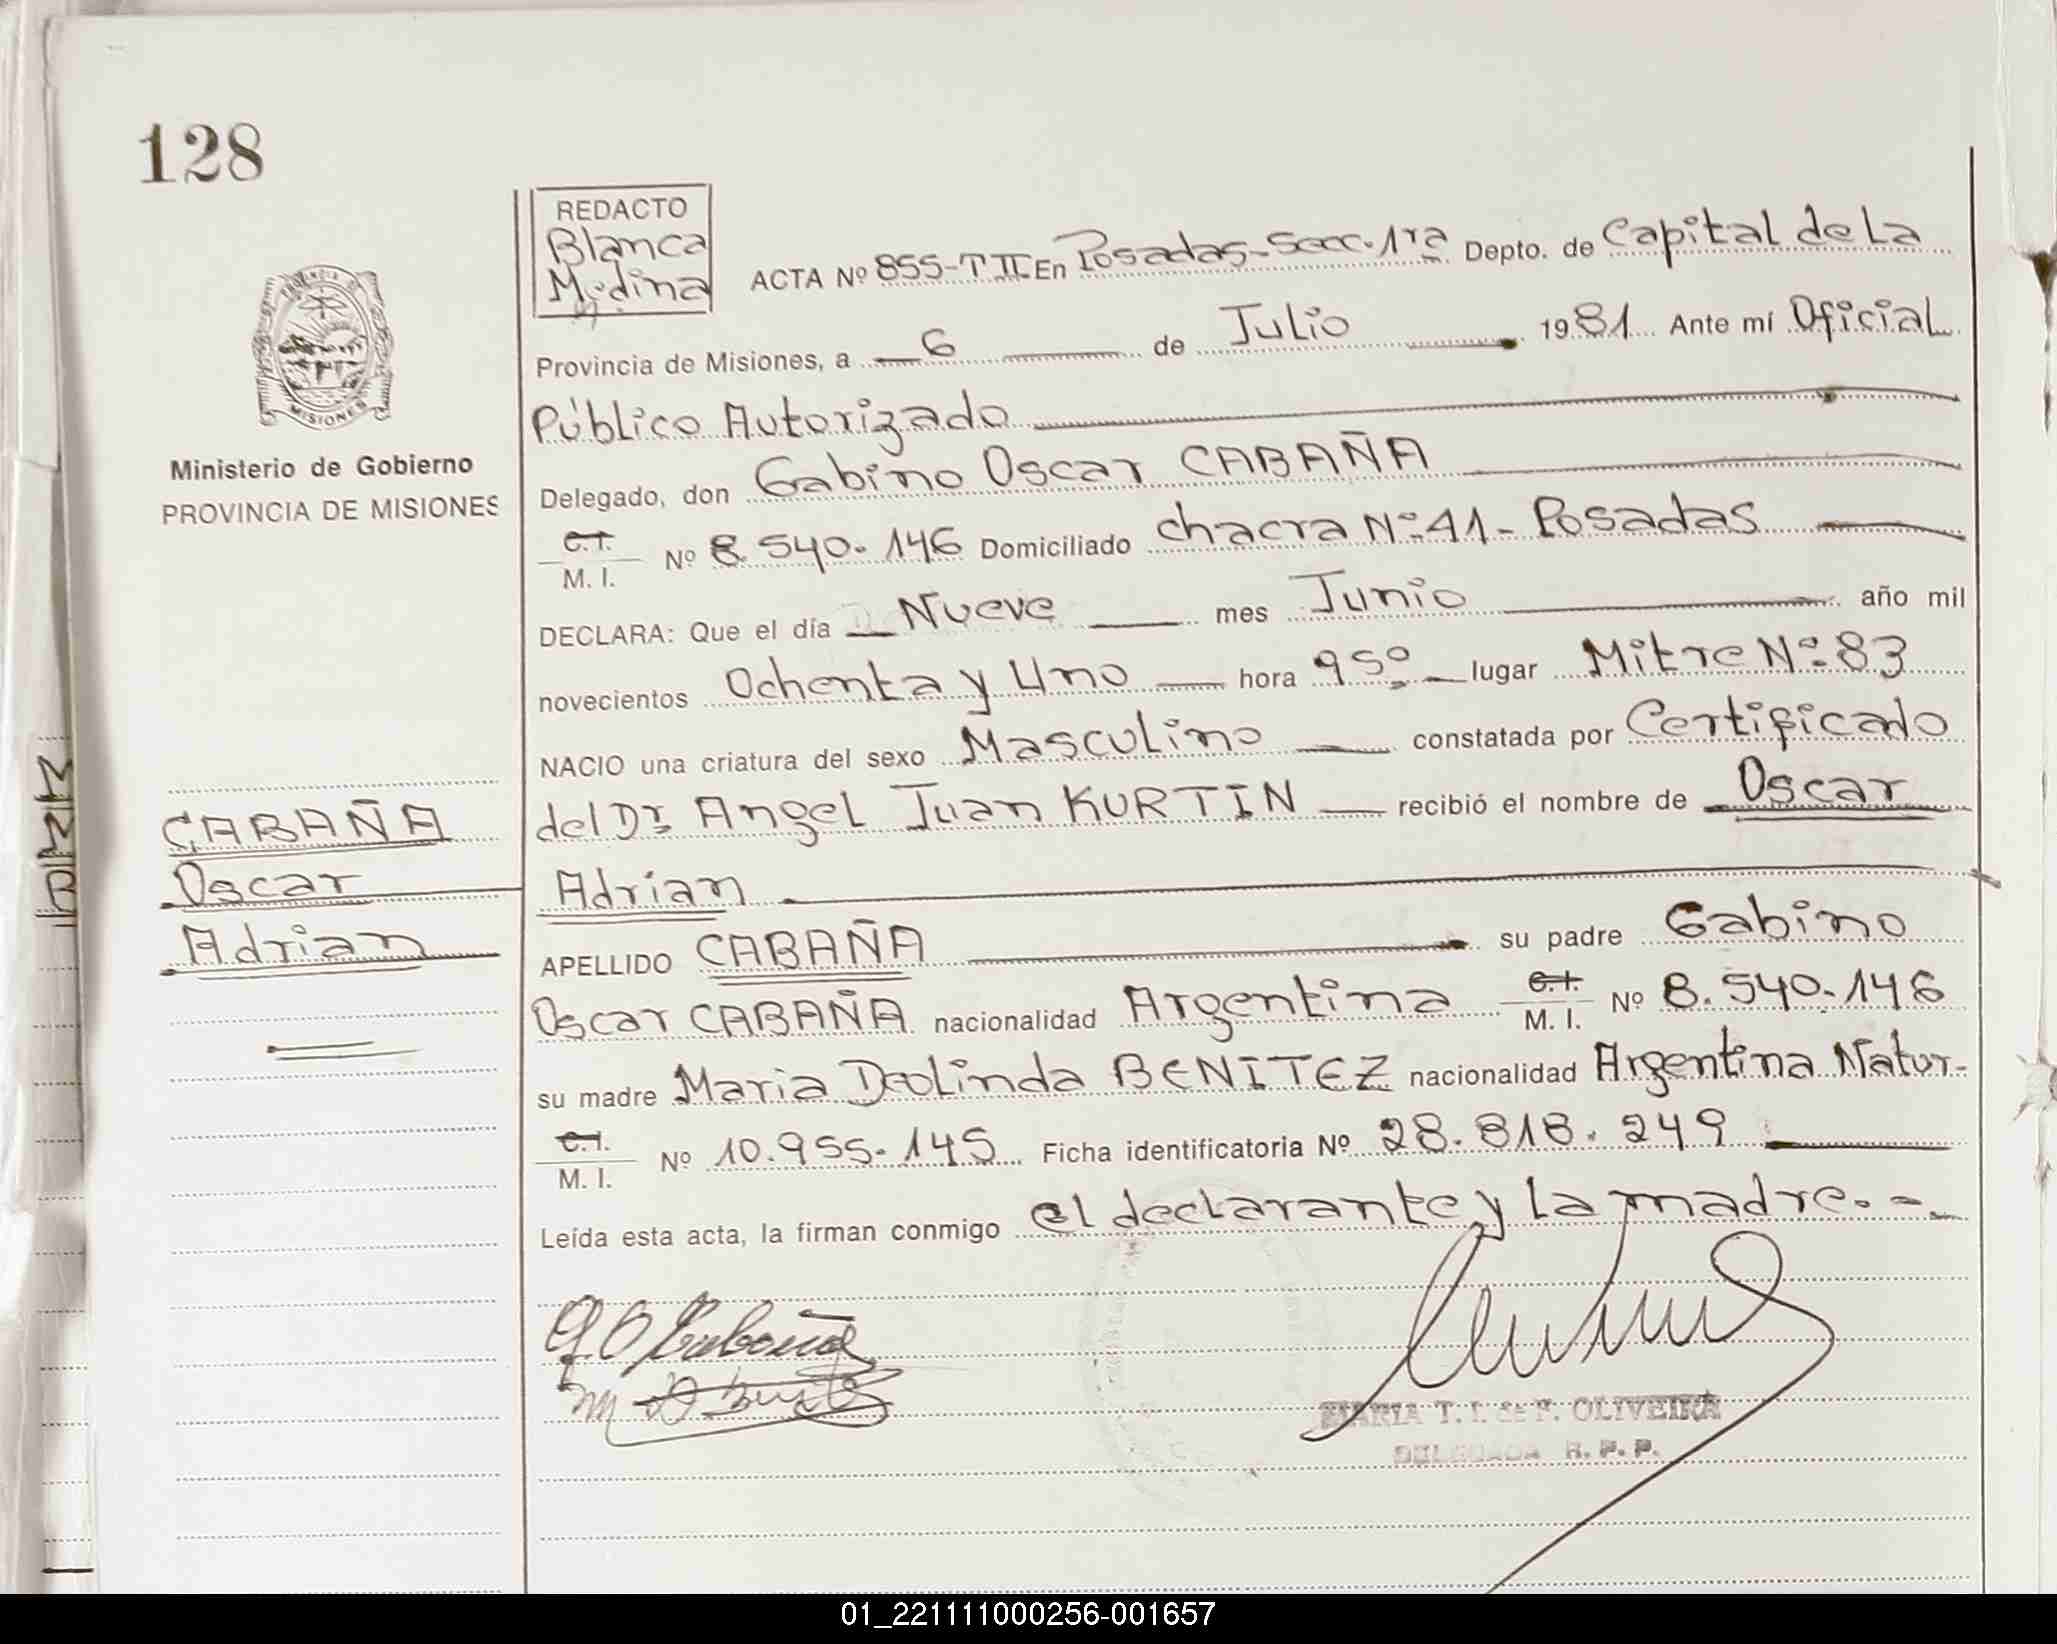 128
REDACTO
Blanca
Medina
ACTA Nº 855-TII En Posadas-Secc.1ra Depto. de Capital de La
Provincia de Misiones, a 6 de Julio 1981 Ante mí Oficial
Público Autorizado
Delegado, don Gabino Oscar CABAÑA
C.I.
M. I. Nº 8.540.146 Domiciliado chacra Nº 41 - Posadas
DECLARA: Que el día Nueve mes Junio año mil
novecientos Ochenta y Uno hora 950 lugar Mitre Nº 83
NACIO una criatura del sexo Masculino constatada por Certificado
del Dr. Angel Juan KURTIN recibió el nombre de Oscar
Adrian
APELLIDO CABAÑA su padre Gabino
Oscar CABAÑA nacionalidad Argentina C.I.
M. I. Nº 8.540.146
su madre Maria Deolinda BENITEZ nacionalidad Argentina Natur-
C.I.
M. I. Nº 10.955.145 Ficha identificatoria Nº 28.818.249
Leída esta acta, la firman conmigo el declarante y la madre.-
G O Cabaña
MARIA T. I. de F. OLIVEIRA
DELEGADA R. P. P.
PROVINCIA DE
MISIONES
Ministerio de Gobierno
PROVINCIA DE MISIONES
CABAÑA
Oscar
Adrian
01_221111000256-001657